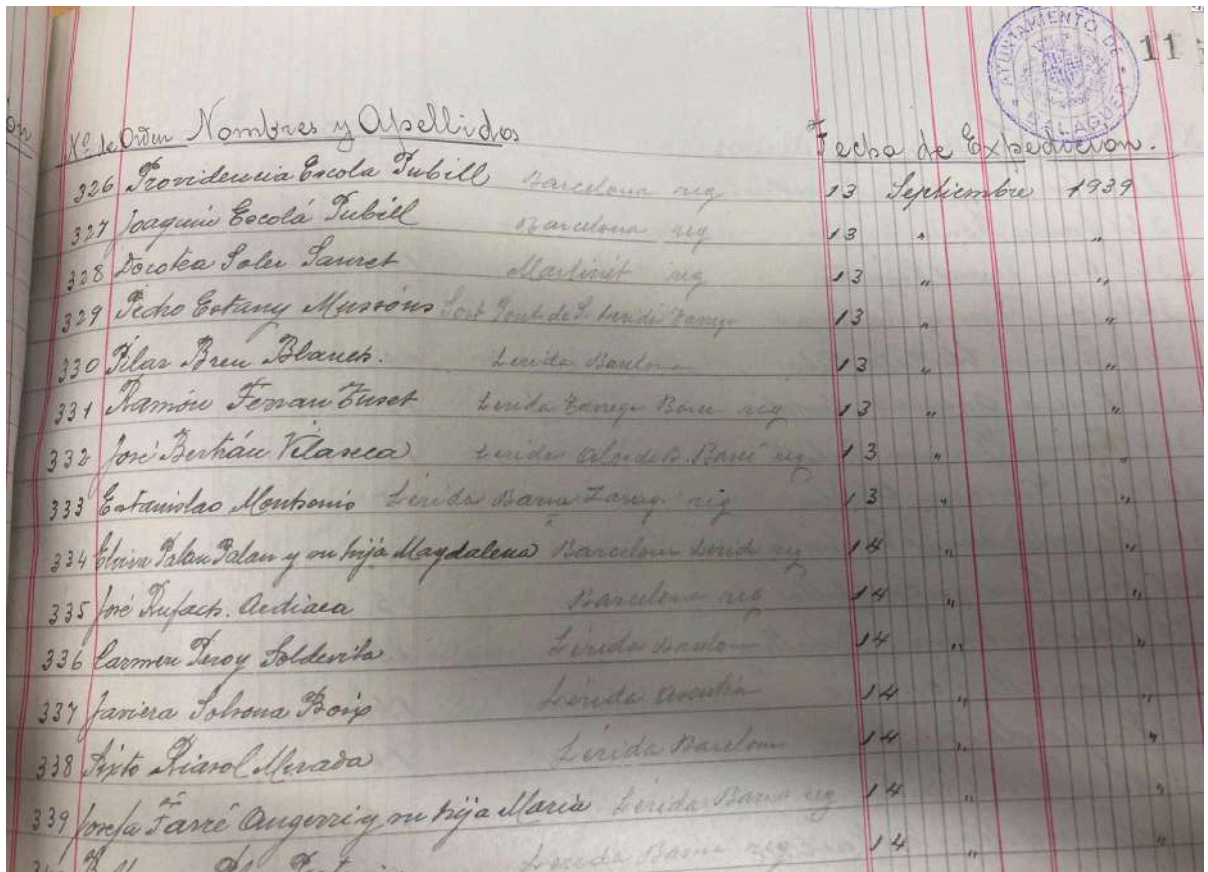 AYUNTAMIENTO DE BALAGUER
11
Nº de Orden Nombres y Apellidos Fecha de Expedición.
326 Providencia Escola Tubill Barcelona reg 13 Septiembre 1939
327 Joaquin Escolá Tubill Barcelona reg 13 " "
328 Dorotea Soler Sauret Martinet reg 13 " "
329 Pedro Estany Mussóns Sort Pont de S. 13 " "
330 Pilar Breu Blanch. Lerida Barelona 13 " "
331 Ramón Ferran Tuset Lerida Tarrega Barc reg 13 " "
332 José Bertrán Vilaseca Lerida 13 " "
333 Estanislao Montsonis Lérida Barna Zarag. reg 13 " "
334 Elvira Palau Palau y su hija Magdalena Barcelona Lerida reg 14 " "
335 José Rufach. Ardiaca Barcelona reg 14 " "
336 Carmen Peroy Soldevila Lérida Barelona 14 " "
337 Javiera Solsona Boix Lérida 14 " "
338 Sixto Riasol Lérida Barelona 14 " "
339 Josefa Farré y su hija Maria Lerida Barna reg 14 " "
Lerida Barna reg 14 " "